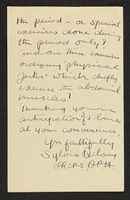 the period - or special
exercises done during
the period only?
and are these
ordinary physical
jerks" which chiefly
exercise the abdominal
muscles?
Thanking you in
anticipation &
at your convenience.
Yrs faithfully
Sylvia